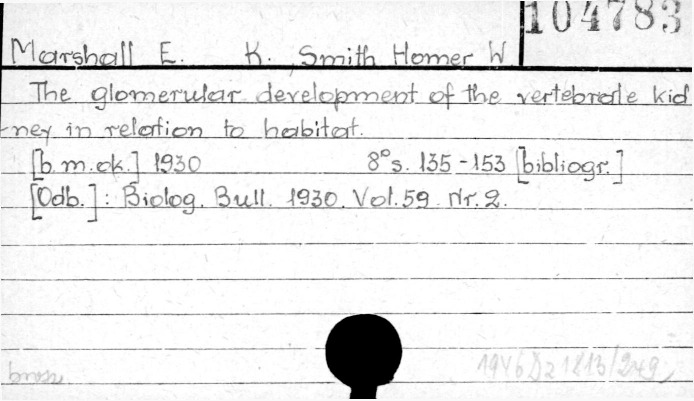 104783
Marshall E. K. Smith Homer W
The glomerular development of the vertebrate kid
ney in relation to habitat.
[b.m.ok.] 1930 8°s. 135-153 [bibliogr.]
[Odb.]: Biolog. Bull. 1930. Vol. 59. Nr. 2.
brosz.